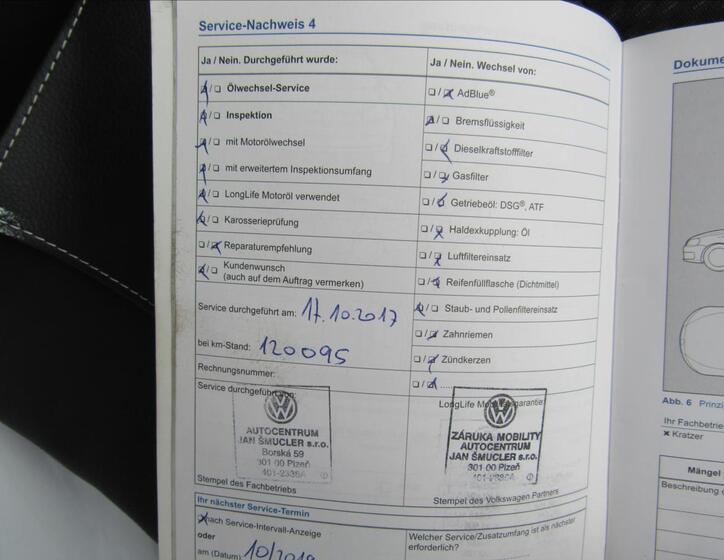 Service-Nachweis 4
Ja / Nein. Durchgeführt wurde:
☒/☐ Ölwechsel-Service
☒/☐ Inspektion
☒/☐ mit Motorölwechsel
☒/☐ mit erweitertem Inspektionsumfang
☒/☐ LongLife Motoröl verwendet
☒/☐ Karosserieprüfung
☐/☒ Reparaturempfehlung
☒/☐ Kundenwunsch
(auch auf dem Auftrag vermerken)
Service durchgeführt am: 17.10.2017
bei km-Stand: 120095
Rechnungsnummer:
Service durchgeführt von:
AUTOCENTRUM
JAN ŠMUCLER s.r.o.
Borská 59
301 00 Plzeň
Stempel des Fachbetriebs
Ja / Nein. Wechsel von:
☐/☒ AdBlue®
☒/☐ Bremsflüssigkeit
☐/☒ Dieselkraftstofffilter
☐/☒ Gasfilter
☐/☒ Getriebeöl: DSG®, ATF
☐/☒ Haldexkupplung: Öl
☐/☒ Luftfiltereinsatz
☐/☒ Reifenfüllflasche (Dichtmittel)
☒/☐ Staub- und Pollenfiltereinsatz
☐/☒ Zahnriemen
☐/☒ Zündkerzen
☐/☒ ....
LongLife Mobilitätsgarantie:
ZÁRUKA MOBILITY
AUTOCENTRUM
JAN ŠMUCLER s.r.o.
301 00 Plzeň
Stempel des Volkswagen Partners
Ihr nächster Service-Termin
☒ nach Service-Intervall-Anzeige
oder
am (Datum) 10/2019
Welcher Service/Zusatzumfang ist als nächster
erforderlich?
Dokume
Abb. 6 Prinzi
Ihr Fachbetrie
× Kratzer
Mängel
Beschreibung